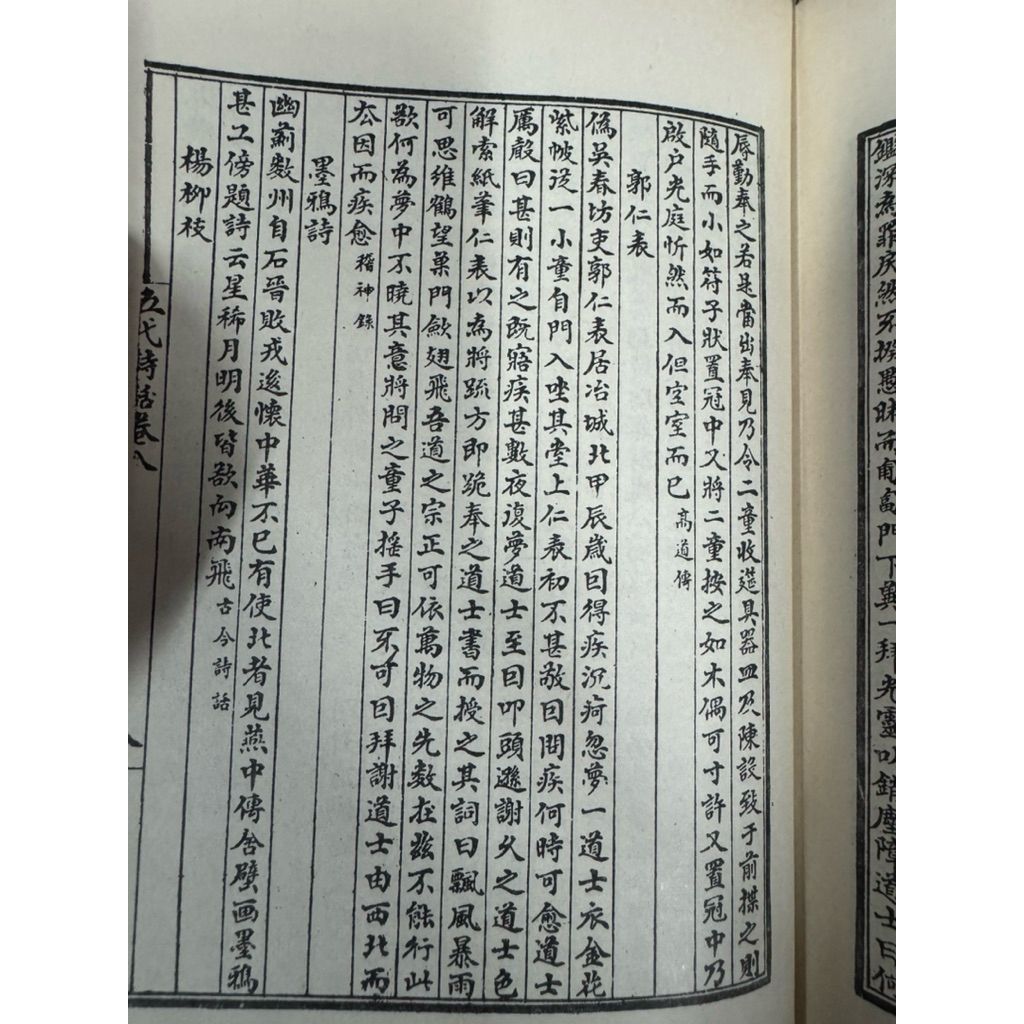 鑑深為罪戾然不揆愚昧而匍匐門下冀一拜光靈以錯塵障道士曰何
辱勤奉之若是當出奉見乃令二童收筵具器皿及陳設致于前揲之則
隨手而小如符子狀置冠中又將二童按之如木偶可寸許又置冠中乃
啟户光庭忻然而入但空室而已 高道傳
郭仁表
偽吳春坊吏郭仁表居冶城北甲辰歲因得疾沉疴忽夢一道士衣金花
紫帔從一小童自門入坐其堂上仁表初不甚敬因問疾何時可愈道士
厲聲曰甚則有之既寤疾甚數夜復夢道士至因叩頭遜謝久之道士色
解索紙筆仁表以為將疏方即跪奉之道士書而授之其詞曰飄風暴雨
可思維鶴望巢門歛翅飛吾道之宗正可依萬物之先數在茲不能行此
欲何為夢中不曉其意將問之童子搖手曰不可因拜謝道士由西北而
去因而疾愈 稽神錄
墨鴉詩
幽薊數州自石晉敗戎後懷中華不已有使北者見燕中傳舍壁画墨鴉
甚工傍題詩云星稀月明後皆欲向南飛 古今詩話
楊柳枝
五代詩話卷八